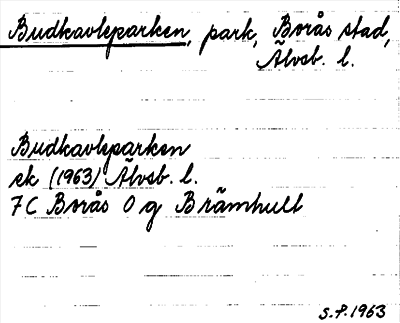 Budkavleparken, park, Borås stad,
Älvsb. l.
Budkavleparken
ek (1963) Älvsb. l.
7 C Borås O g Brämhult
S.F. 1963